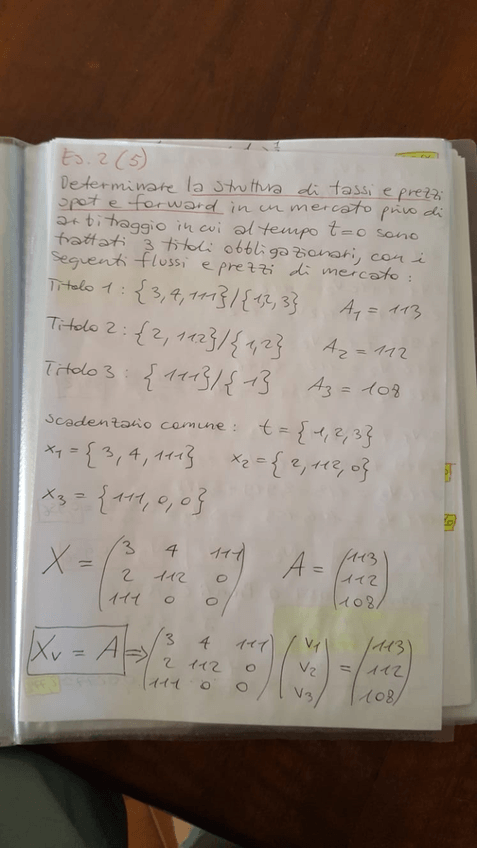 Es. 2 (5)
Determinare la struttura di tassi e prezzi
spot e forward in un mercato privo di
arbitraggio in cui al tempo t=0 sono
trattati 3 titoli obbligazionari, con i
seguenti flussi e prezzi di mercato:
Titolo 1: {3,4,111}/{1,2,3} A₁ = 113
Titolo 2: {2, 112}/{1,2} A₂ = 112
Titolo 3: {111}/{1} A₃ = 108
scadenzario comune: t = {1,2,3}
x₁ = {3, 4, 111} x₂ = {2,112,0}
x₃ = {111, 0, 0}
X = (3 4 111
2 112 0
111 0 0) A = (113
112
108)
Xv = A ⇒ (3 4 111
2 112 0
111 0 0) (v₁
v₂
v₃) = (113
112
108)